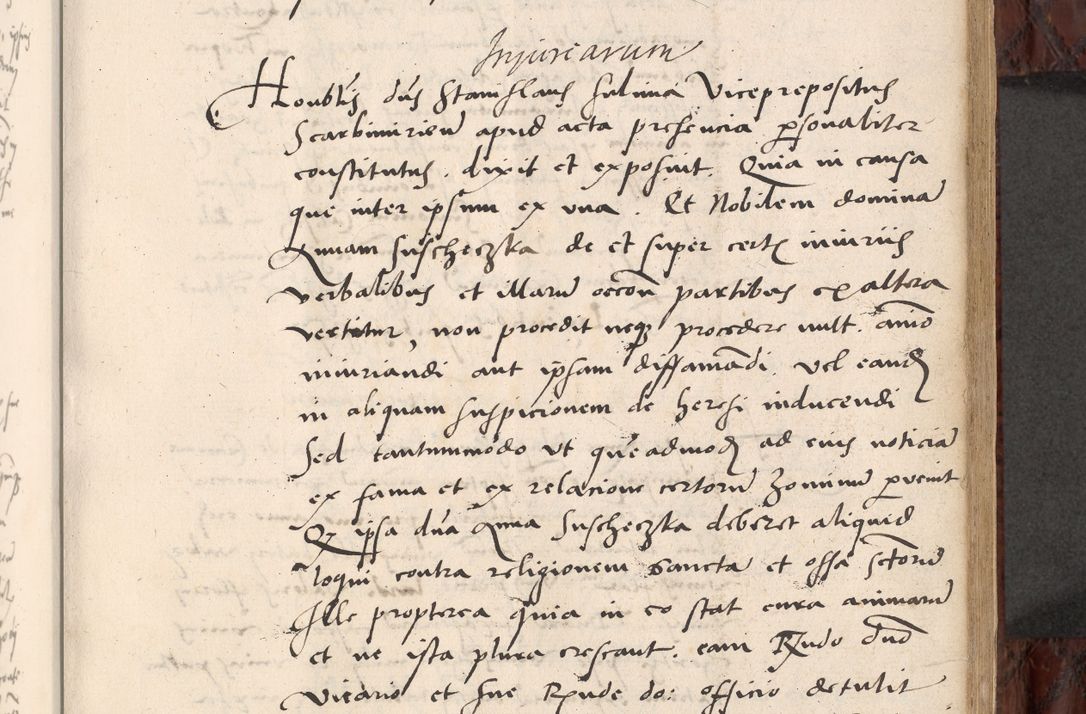 Injuriarum
Honblis dns Stanislaus Sulima Viceprepositus
Scarbimirien apud acta presencia personaliter
constitutus. dixit et exposuit. Quia in causa
que inter ipsum ex vna. Et Nobilem dominam
Annam Suscheczka de et super certis iniuriis
verbalibus et illarum occon partibus ex altera
vertitur, non procedit neque procedere vult. animo
iniuriandi aut ipsam diffamandi. vel eandem
in aliquam suspicionem de heresi inducendi
Sed tantummodo vt quemadmodum ad eius noticiam
ex fama et ex relacione certorum hominum pervenit
Quod ipsa dna Anna Suscheczka deberet aliquid
loqui contra religionem Sancta et ossa sctorum
Ille propterea quia in eo stat cura animarum
et ne ista plura crescant. eam Rndo dno
Vicario et sue Rnde do: officio detulit